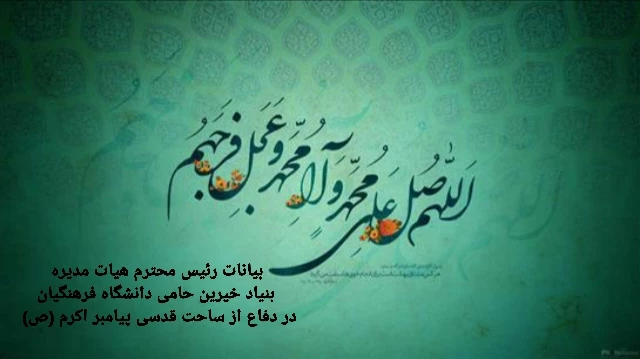 اللهم صل علی محمد و آل محمد و عجل فرجهم
بیانات رئیس محترم هیات مدیره
بنیاد خیرین حامی دانشگاه فرهنگیان
در دفاع از ساحت قدسی پیامبر اکرم (ص)